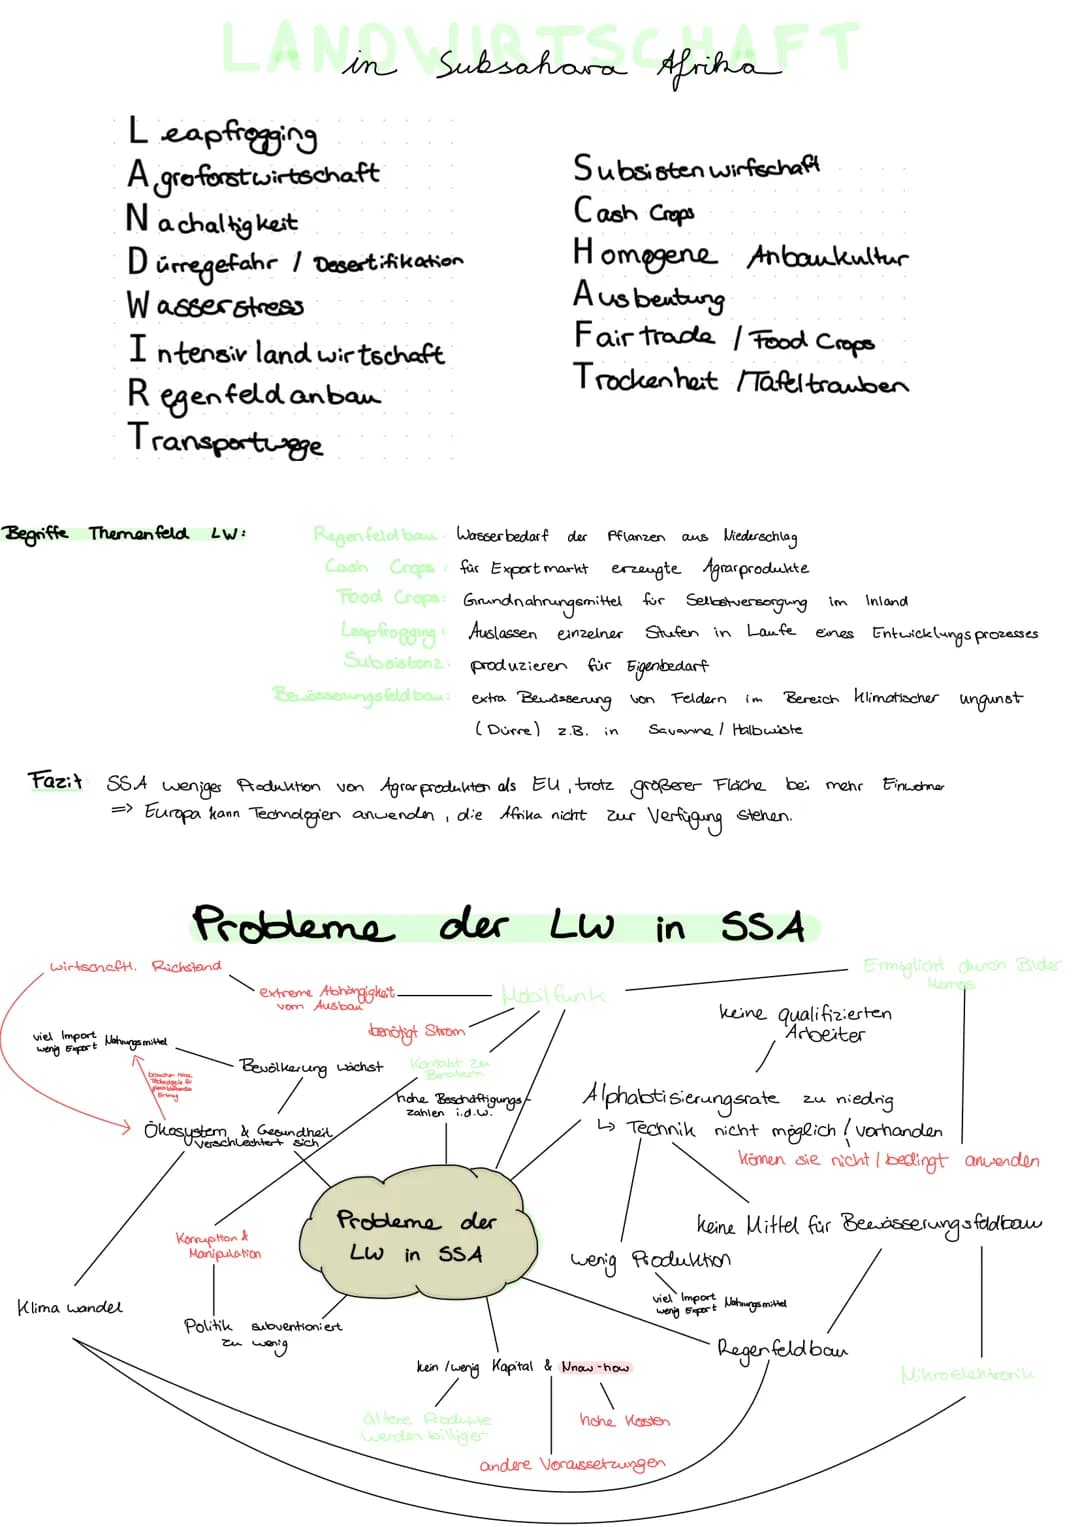 LANDWIRTSCHAFT
in Subsahara Afrika
Leapfrogging
Agroforstwirtschaft
Nachaltigkeit
Dürregefahr / Desertifikation
Wasserstress
Intensivlandwirtschaft
Regenfeldanbau
Transportwege
Subsistenwirtschaft
Cash Crops
Homogene Anbaukultur
Ausbeutung
Fairtrade / Food Crops
Trockenheit / Tafeltrauben
Begriffe Themenfeld LW:
Regenfeldbau: Wasserbedarf der Pflanzen aus Niederschlag
Cash Crops: für Exportmarkt erzeugte Agrarprodukte
Food Crops: Grundnahrungsmittel für Selbstversorgung im Inland
Leapfrogging: Auslassen einzelner Stufen in Laufe eines Entwicklungsprozesses
Subsistenz: produzieren für Eigenbedarf
Bewässerungsfeldbau: extra Bewässerung von Feldern im Bereich klimatischer ungunst
(Dürre) z.B. in Savanne / Halbwüste
Fazit: SSA weniges Produktion von Agrarprodukten als EU, trotz größerer Fläche bei mehr Einwohner
=> Europa kann Technologien anwenden, die Afrika nicht zur Verfügung stehen.
Probleme der LW in SSA
wirtschaftl. Rückstand
extreme Abhängigkeit
vom Ausbau
Mobilfunk
Ermöglicht durch Bilder
Memos
benötigt Strom
keine qualifizierten
Arbeiter
viel Import Nahrungsmittel
wenig Export
Bevölkerung wächst
Kontakt zu
Beratern
brauchen neue
Technologie für
Ertrag
hohe Beschäftigungs-
zahlen i.d.W.
Alphabtisierungsrate zu niedrig
↳ Technik nicht möglich / vorhanden
können sie nicht / bedingt anwenden
Ökosystem & Gesundheit
verschlechtert sich
Probleme der
LW in SSA
Korruption &
Manipulation
keine Mittel für Bewässerungsfeldbau
wenig Produktion
viel Import Nahrungsmittel
wenig Export
Klima wandel
Politik subventioniert
zu wenig
Regenfeldbau
kein / wenig Kapital & Know-how
Mikroelektronik
ältere Produkte
werden billiger
hohe Kosten
andere Voraussetzungen